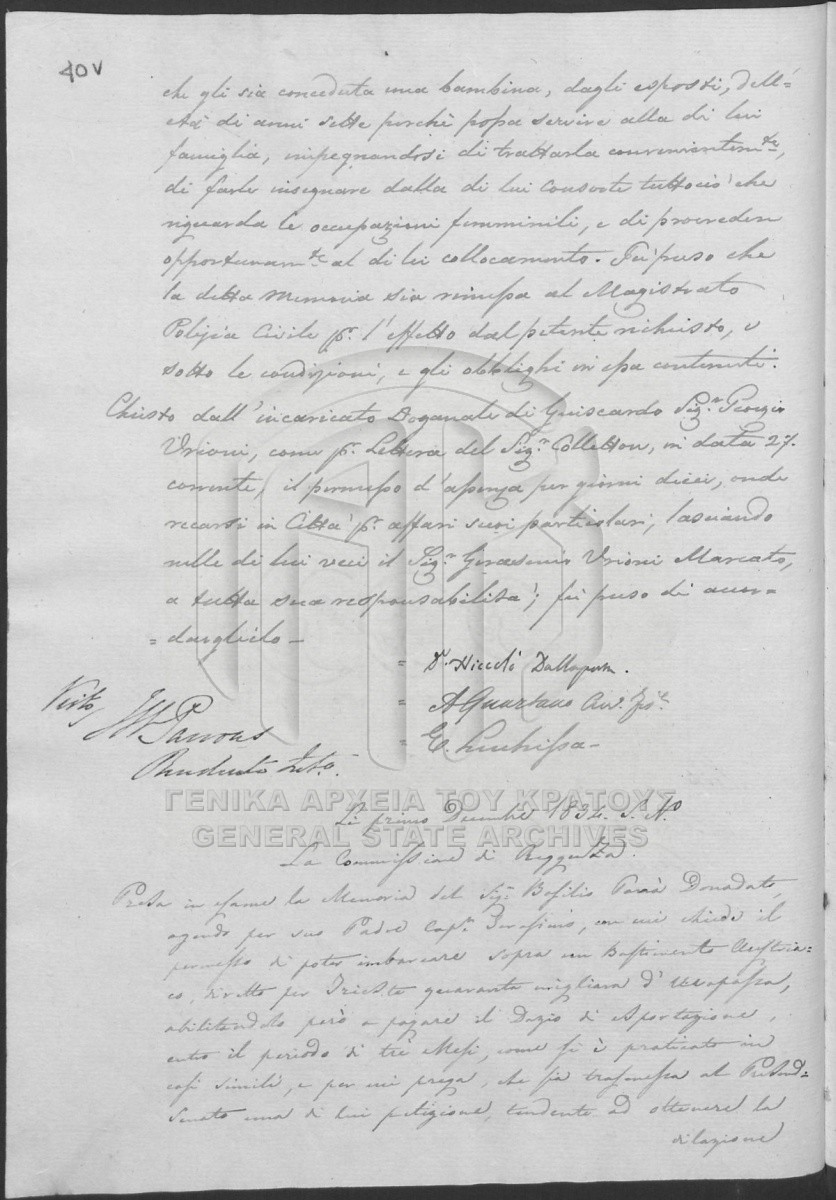 40v
che gli sia conceduta una bambina, dagli esposti, dell'=
età di anni sette perchè possa servire alla di lui
famiglia, impegnandosi di trattarla convenientem.te,
di farle insegnare dalla di lui Consorte tuttociò che
riguarda le occupazioni femminili, e di provedere
opportunam.te al di lei collocamento. Fù preso che
la detta Memoria sia rimessa al Magistrato
Polizia Civile p.r l'effetto dal petente richiesto, e
sotto le condizioni, e gli obblighi in essa contenuti.
Chiesto dall'incaricato Doganale di Guiscardo Sig.r Giorgio
Vrioni, come p.r Lettera del Sig.r Collettor, in data 27.
corrente, il permesso d'assenza per giorni dieci, onde
recarsi in Città p.r affari suoi particolari, lasciando
nelle di lui veci il Sig.r Gerasimo Vrioni Marcato,
a tutta sua responsabilità; fù preso di accor=
=darglielo –
" D.r Niccolò Dallaporta.
" A Quartano Avv. Fis.le
" E. Luchissa
Visto
Parsons
Residente
ΓΕΝΙΚΑ ΑΡΧΕΙΑ ΤΟΥ ΚΡΑΤΟΥΣ
GENERAL STATE ARCHIVES
Li primo Decembre 1834. S. N.
La Commissione di Reggenza.
Presa in esame la Memoria del Sig.r Basilio Donadato,
agendo per suo Padre Cap.n Gerasimo, con cui chiede il
permesso di poter imbarcare sopra un Bastimento Austria=
co, diretto per Trieste quaranta migliara d'uvapassa,
abilitandolo però a pagare il Dazio di Asportazione,
entro il periodo di trè Mesi, come si è praticato in
casi simili, e per cui prega, che sia trasmessa al
Senato una di lui petizione, tendente ad ottenere la
dilazione